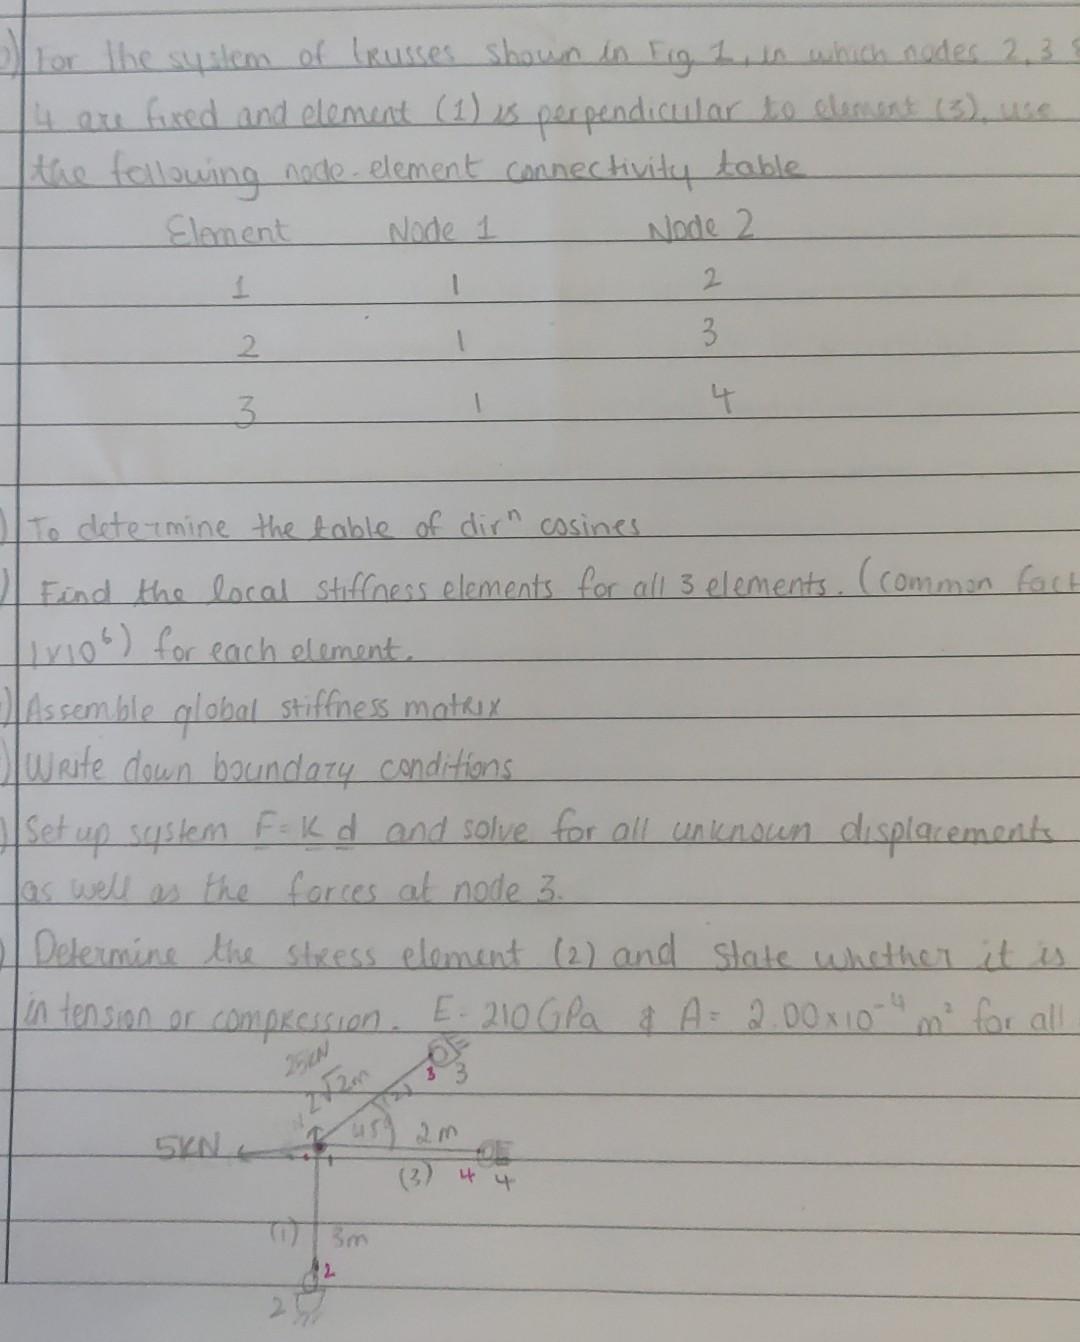 ) For the system of trusses shown in Fig 1, in which nodes 2, 3 &
4 are fixed and element (1) is perpendicular to element (3), use
the following node-element connectivity table
Element Node 1 Node 2
1 1 2
2 1 3
3 1 4
) To determine the table of dirⁿ cosines
) Find the local stiffness elements for all 3 elements. (common fact
1x10⁶) for each element.
) Assemble global stiffness matrix
) Write down boundary conditions
) Set up system F=K d and solve for all unknown displacements
as well as the forces at node 3.
) Determine the stress element (2) and state whether it is
in tension or compression. E = 210 GPa & A = 2.00x10⁻⁴ m² for all
25KN
2√2m (2) 3 3
5KN 45° 2m
1 (3) 4 4
(1) 3m
2
2